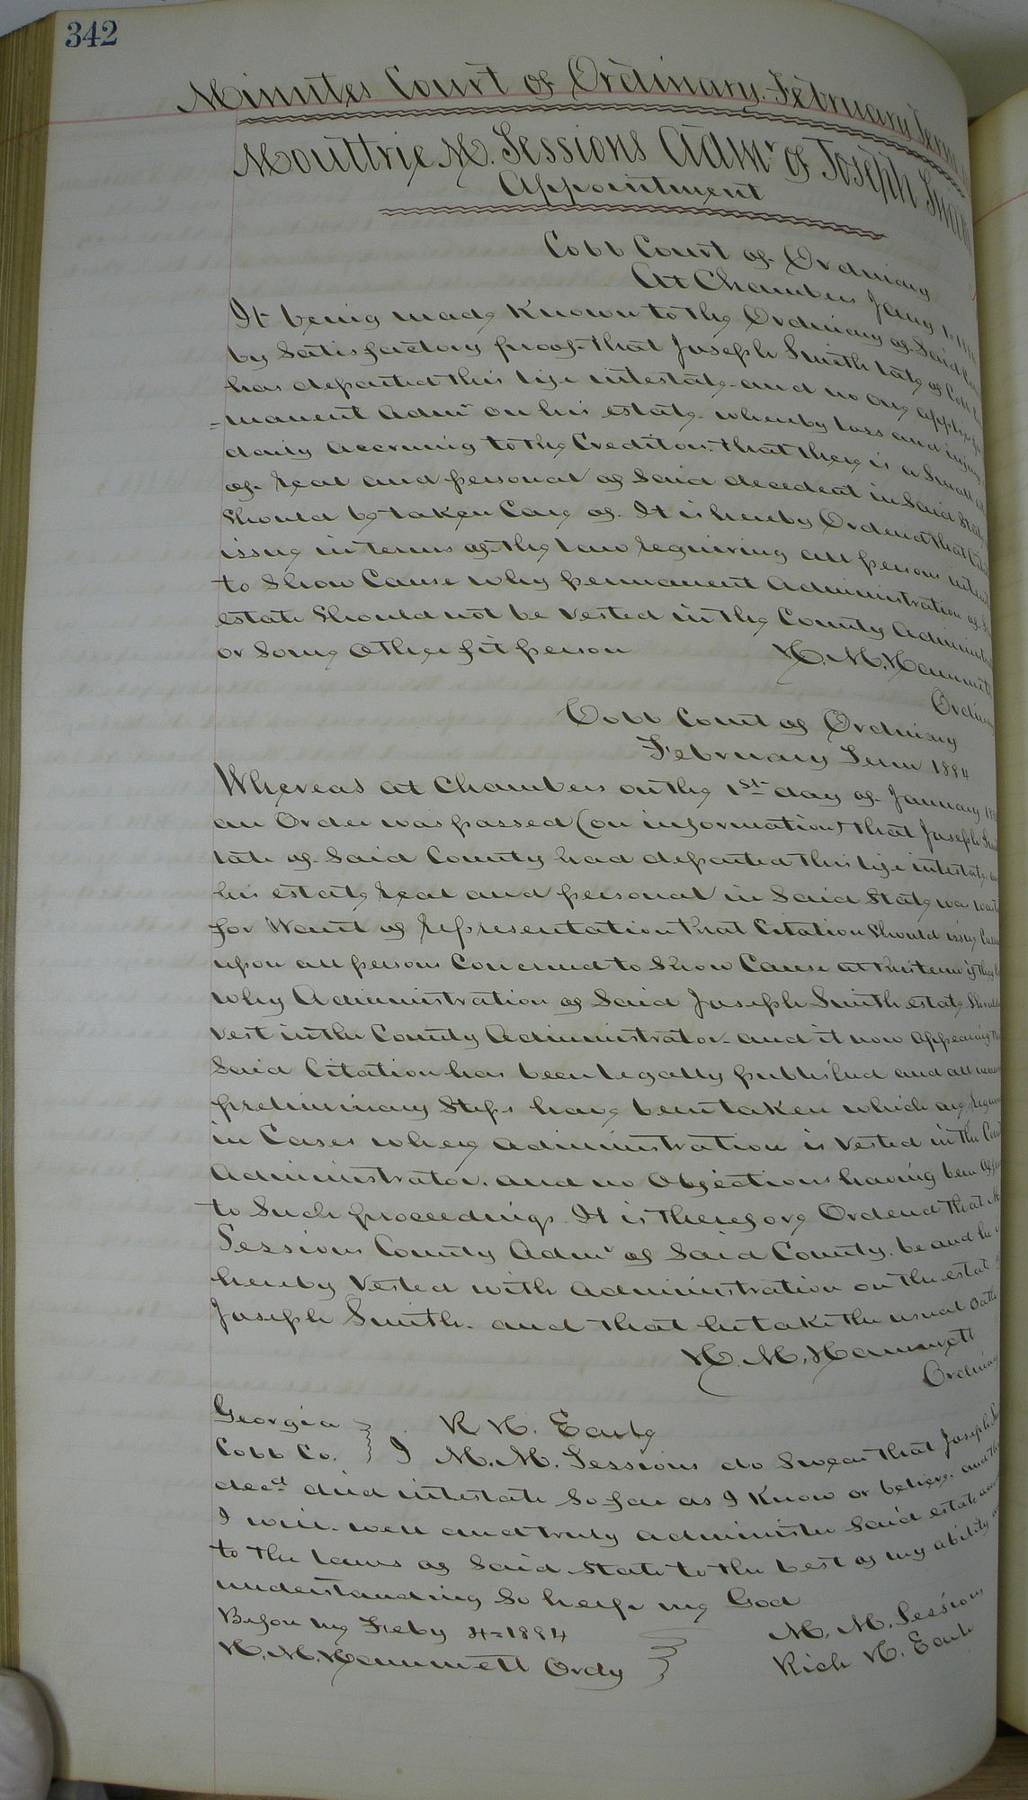 342
Minutes Court of Ordinary, February Term
Mouttrie M. Sessions Admr of Joseph
Appointment
Cobb Court of Ordinary
At Chambers Jany 1st
It being made Known to the Ordinary of Said
by Satisfactory proof that Joseph Smith late of Cobb
has departed this life intestate and no one applies for
=manent Admr on his estate whereby loss and injury
daily accruing to the Creditors. That there is a Small
of real and personal of Said decedent in Said State
Should be taken Care of. It is hereby Ordered that
issue in terms of the law requiring all persons
to Show Cause why permanent Administration of
estate Should not be vested in the County
or Some other fit person H. M. Hammett
Cobb Court of Ordinary
February Term 1884
Whereas at Chambers on the 1st day of January
an Order was passed (on information) that Joseph
late of Said County had departed this life intestate
his estate real and personal in Said State was
for Want of representation that Citation Should issue
upon all persons Concerned to Show Cause at this term if they
why Administration of Said Joseph Smith estate
vest in the County Administrator and it now appearing
Said Citation has been legally published and all
preliminary Steps have been taken which are
in Cases where administration is vested in the
Administrator. and no Objections having been
to Such proceedings. It is therefore Ordered that
Sessions County Admr of Said County. be and he
hereby vested with administration on the estate
Joseph Smith. and that he take the usual oath
H. M. Hammett
Ordinary
Georgia R H. Earle
Cobb Co. } I M. M. Sessions do Swear that Joseph
decd died intestate So far as I Know or believe. and
I will well and truly administer Said estate
to the laws of Said State to the best of my ability
understanding So help me God
Before me Feby 4=1884 M. M. Sessions
H. M. Hammett Ordy Rich H. Earle